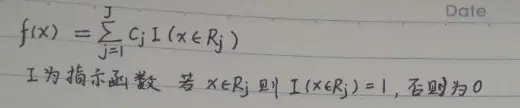 Date
f(x) = \sum_{j=1}^{J} C_j I(x \in R_j)
I为指示函数 若 x∈Rj 则 I(x∈Rj) = 1, 否则为0